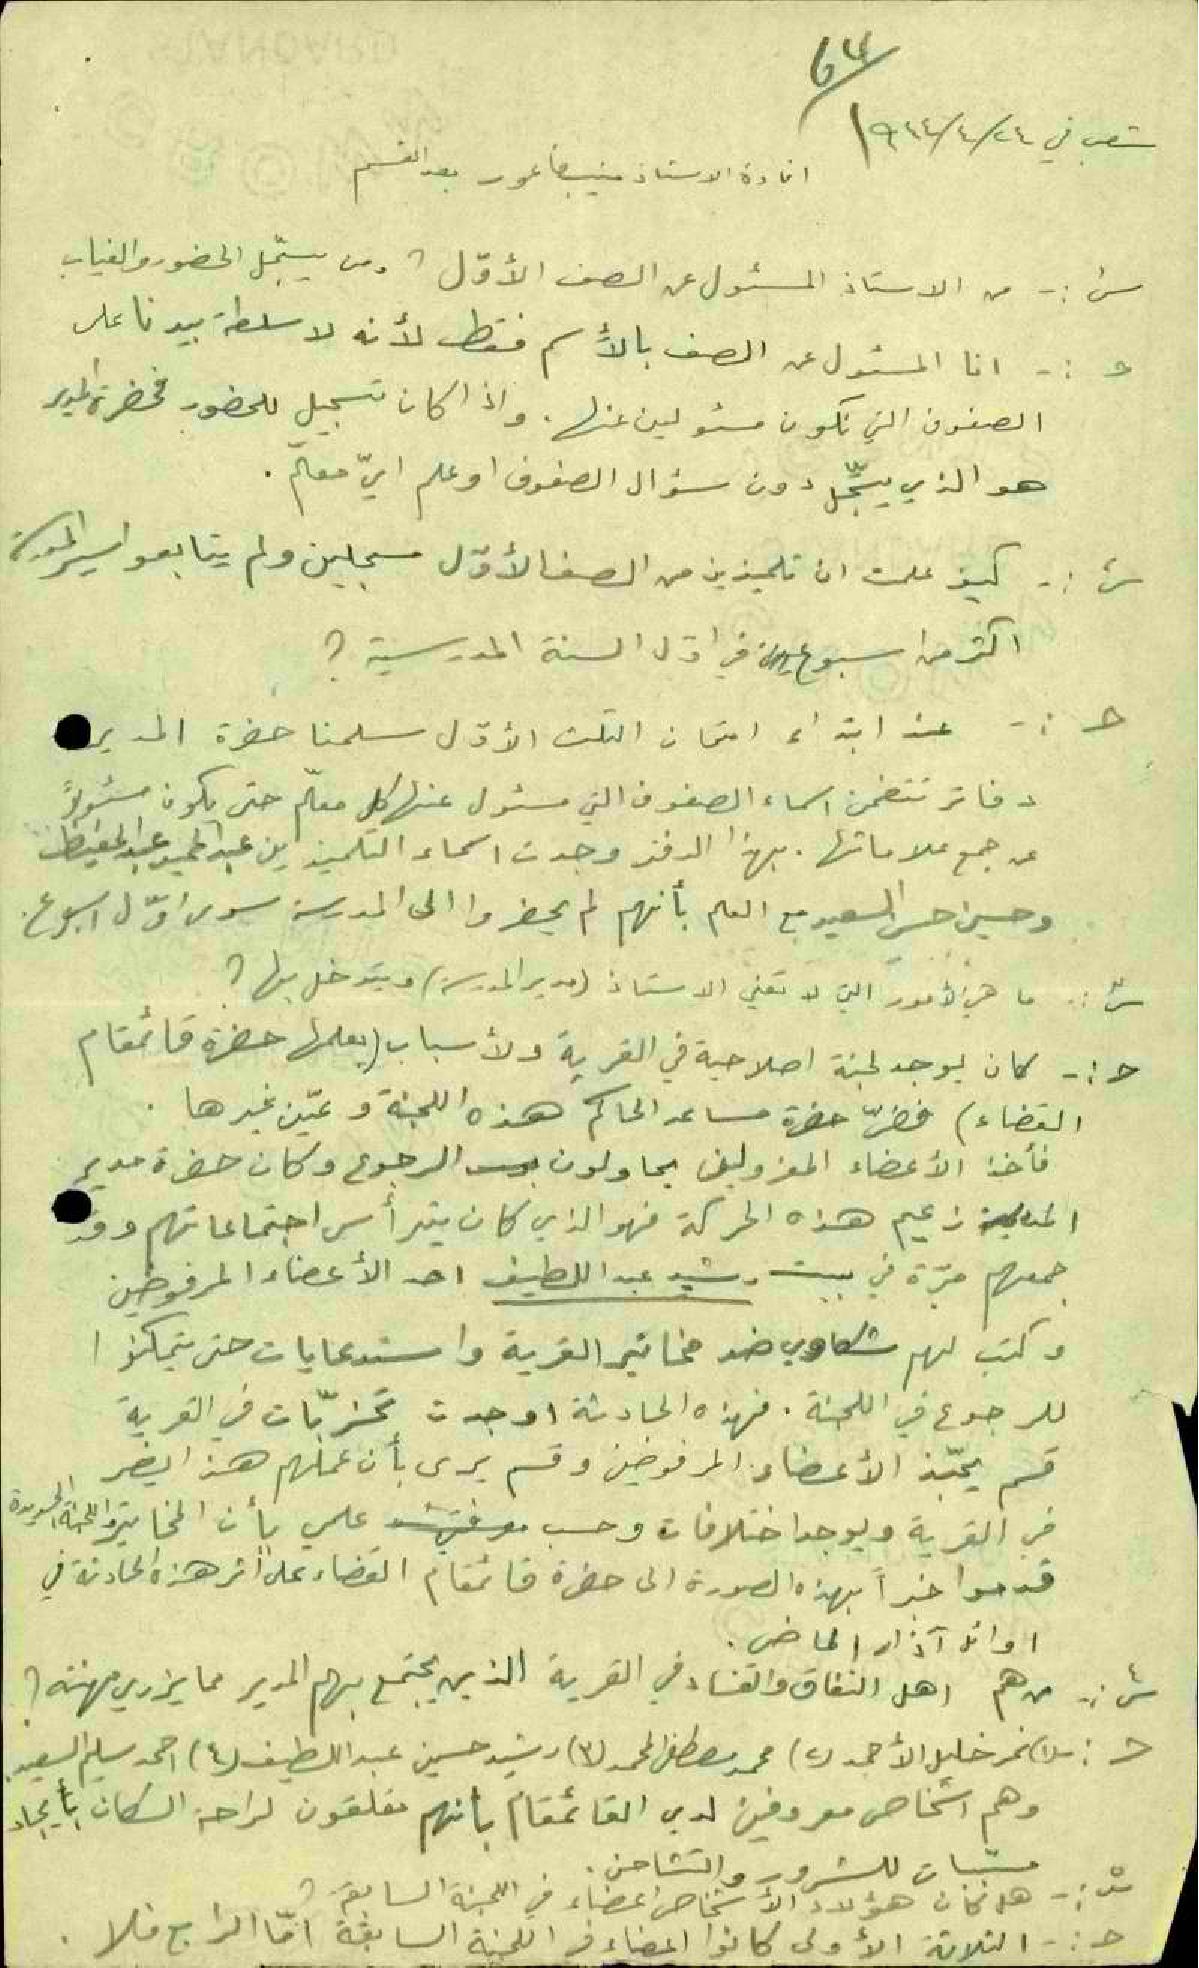 ٦٤
شعب في ٢٤/٤/٩٤٤
افادة الاستاذ منيب فاعور بعد القسم
س١ :- من الاستاذ المسئول عن الصف الأوّل ؟ ومن يسجّل الحضور والغياب
ج :- انا المسئول عن الصف بالأسم فقط لأنه لا سلطة بيدنا على
الصفوف التي نكون مسئولين عنها . واذا كان تسجيل للحضور فحضرة المدير
هو الذي يسجّل دون سؤال الصفوف او علم ايّ معلّم .
س٢ :- كيف علمت ان تلميذين من الصف الأوّل مسجلين ولم يتابعوا سير المدرسة
اكثر من اسبوعين في اوّل السنة المدرسية ؟
ج :- عند ابتداء امتحان الثلث الأوّل سلمنا حضرة المدير
دفاتر تتضمن اسماء الصفوف التي مسئول عنها كل معلّم حتى يكون مسئولاً
عن جمع علاماتها . بهذا الدفتر وجدت اسماء التلميذين عبد الحميد عبد الحفيظ
وحسين حسن السعيد مع العلم بأنهم لم يحضروا الى المدرسة سوى اوّل اسبوع .
س٣ :- ما هي الأمور التي لا تعني الاستاذ (مدير المدرسة) ويتدخل بها ؟
ج :- كان يوجد لجنة اصلاحية في القرية ولأسباب (يعلمها حضرة قائمقام
القضاء) فضّ حضرة مساعد الحاكم هذه اللجنة وعيّن غيرها .
فأخذ الأعضاء المعزولين يحاولون الرجوع وكان حضرة مدير
المدرسة زعيم هذه الحركة فهو الذي كان يترأس اجتماعاتهم وقد
جمعهم مرّة في بيت رشيد عبد اللطيف احد الأعضاء المرفوضين
وكتب لهم شكاوي ضد مخاتير القرية واستدعايات حتى يتمكنوا
للرجوع في اللجنة . فهذه الحادثة اوجدت تحزّبات في القرية
قسم يحبّذ الأعضاء المرفوضين وقسم يرى بأن عملهم هذا يضر
في القرية ويوجد اختلافات وحسب علمي بأن المخاتير واللجنة الجديدة
قدموا خبراً بهذه الصورة الى حضرة قائمقام القضاء على أثر هذه الحادثة في
اوائل آذار الماضي .
س٤ :- من هم اهل النفاق والفساد في القرية الذين يجتمع بهم المدير مما يزري مهنته ؟
ج :- (١) نمر خليل الأحمد (٢) محمد مصطفى المحمد (٣) رشيد حسين عبد اللطيف (٤) احمد سليم السعيد
وهم اشخاص معروفين لدى القائمقام بأنهم مقلقون لراحة السكان بأيجاد
مسبّبات للشرور والتشاحن .
س٥ :- هل كان هؤلاء الأشخاص اعضاء في اللجنة السابقة ؟
ج :- الثلاثة الأولى كانوا اعضاء في اللجنة السابقة امّا الرابع فلا .